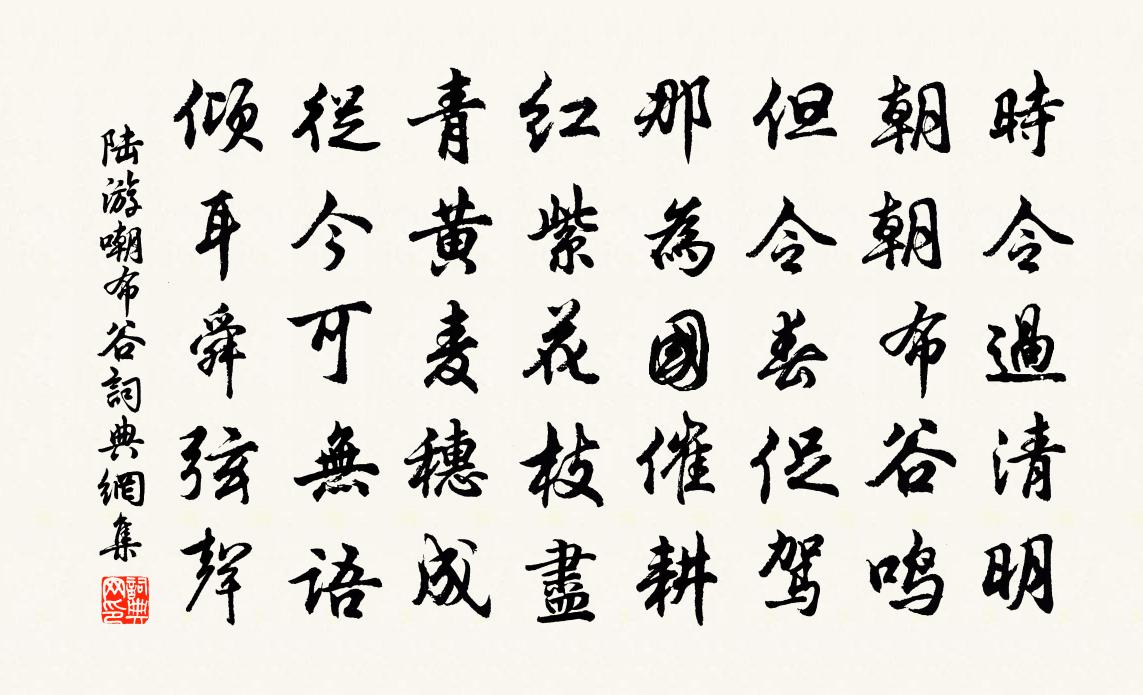 時令過清明
朝朝布谷鸣
但令春促驾
那為國催耕
红紫花枝盡
青黄麦穗成
從今可無語
倾耳舜弦聲
陆游嘲布谷詞典網集
詞典网印